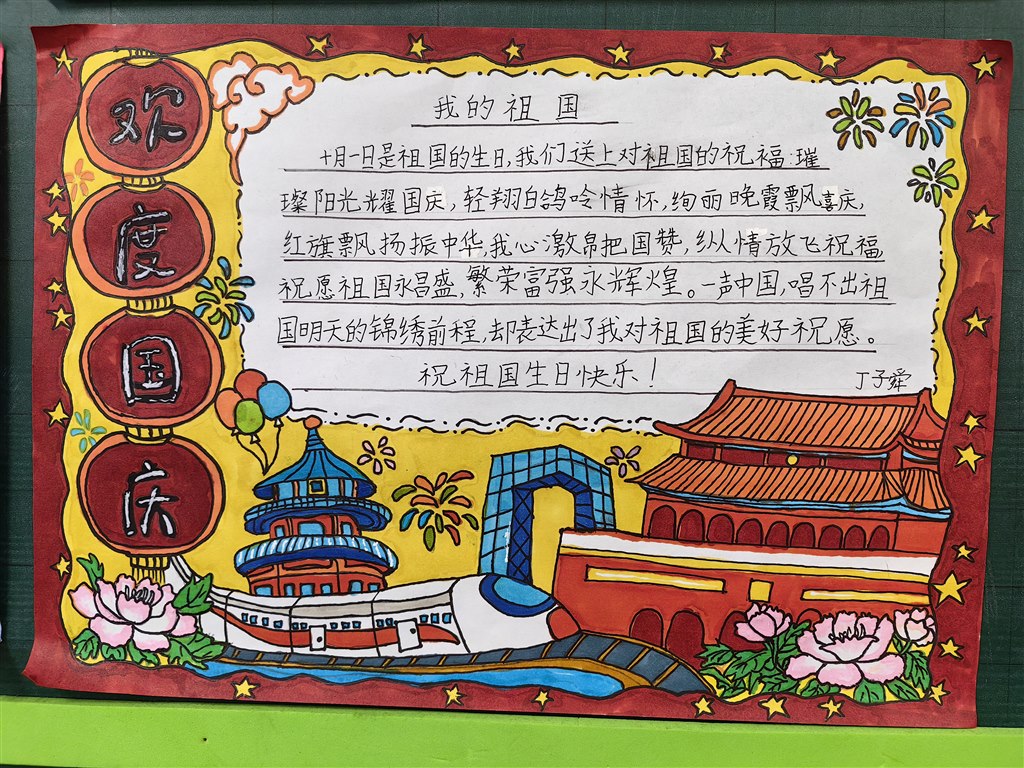 欢度国庆
我的祖国
十月一日是祖国的生日,我们送上对祖国的祝福:璀
璨阳光耀国庆,轻翔白鸽呤情怀,绚丽晚霞飘喜庆,
红旗飘扬振中华,我心激帛把国赞,纵情放飞祝福
祝愿祖国永昌盛,繁荣富强永辉煌。一声中国,唱不出祖
国明天的锦绣前程,却表达出了我对祖国的美好祝愿。
祝祖国生日快乐!
丁子舜